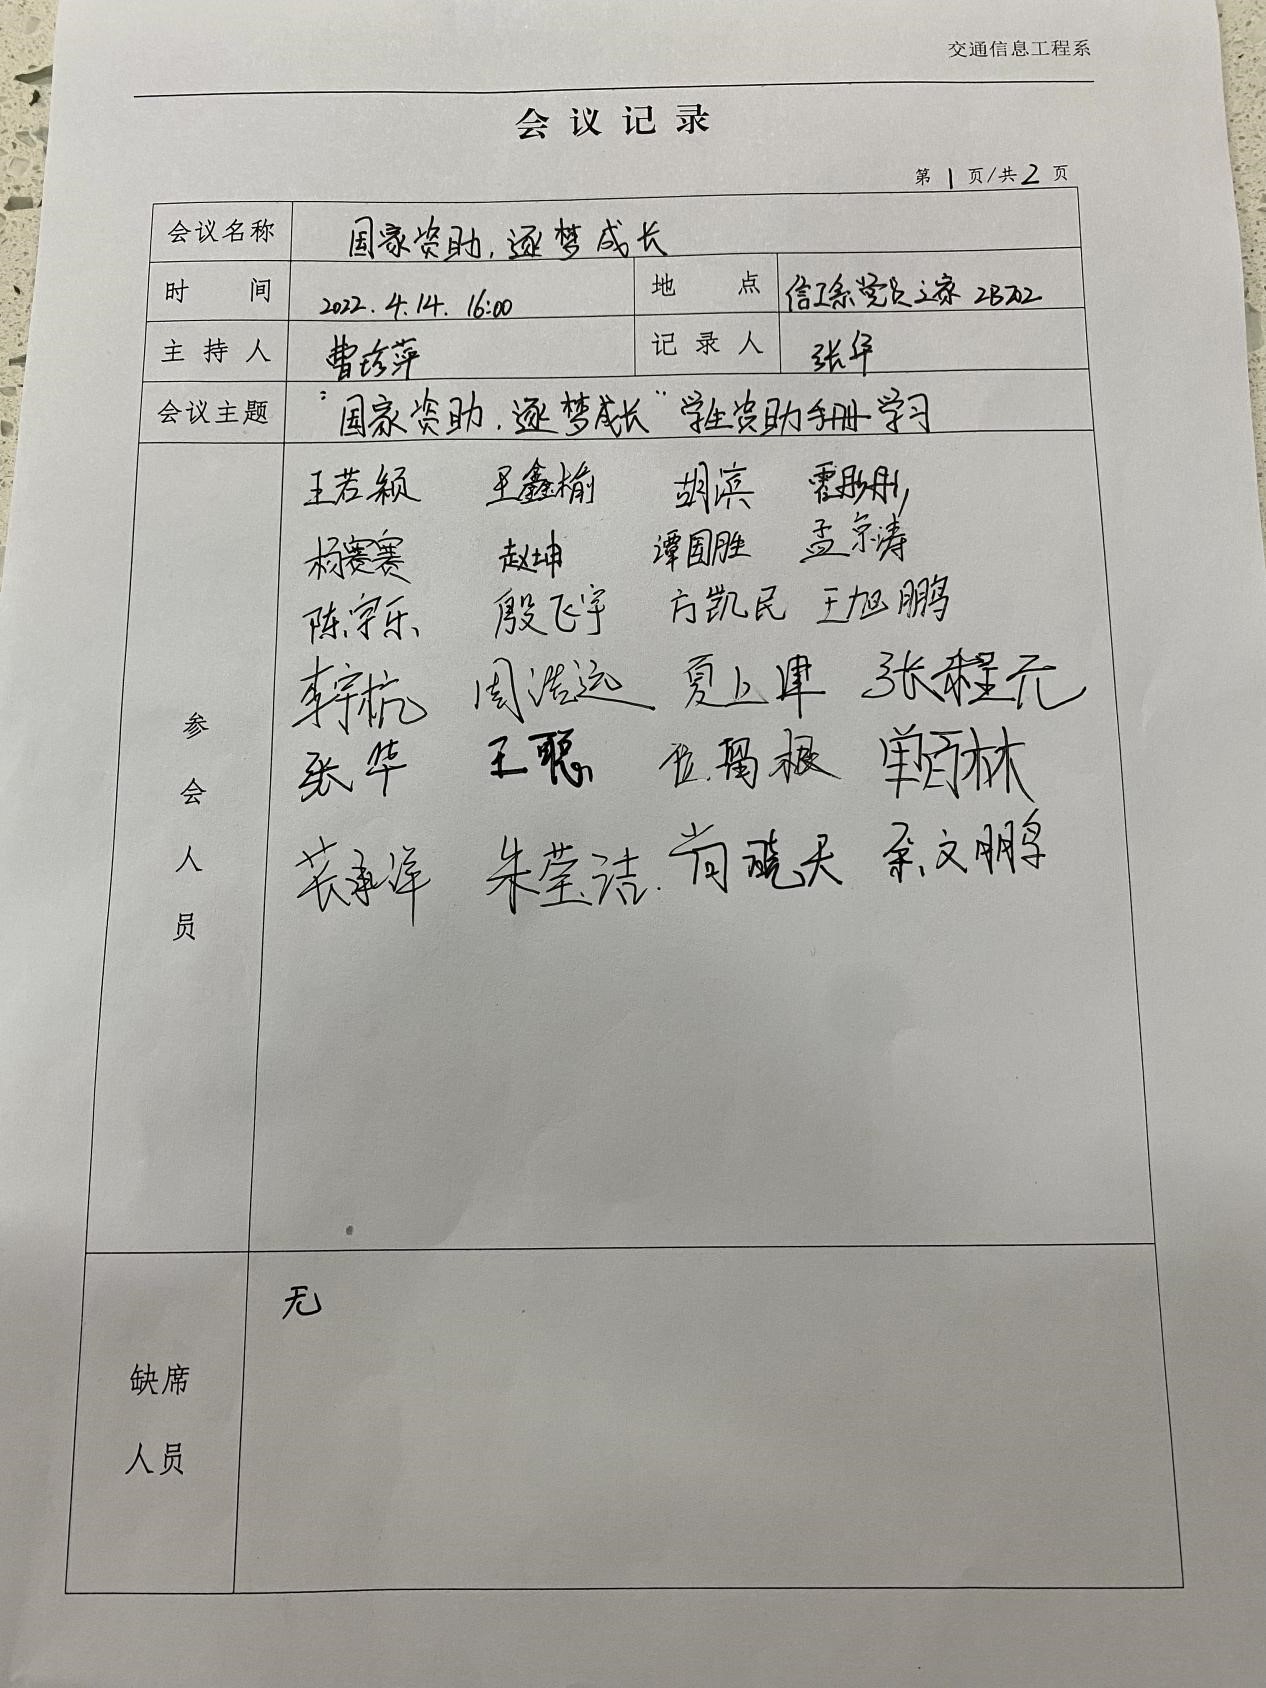 交通信息工程系
会议记录
第 1 页/共 2 页
会议名称 国家资助,逐梦成长
时间 2022.4.14. 16:00 地点 信工系党员之家 2B702
主持人 曹珍萍 记录人 张华
会议主题 "国家资助,逐梦成长"学生资助手册学习
参会人员
王若颖 王鑫榆 胡滨 霍彤彤
杨赛赛 赵坤 谭国胜 孟京涛
陈宇乐 殷飞宇 方凯民 王旭鹏
李宇杭 周浩远 夏上津 张程元
张华 王聪 单百林
朱莹洁 尚晓天 文鹏
缺席人员
无